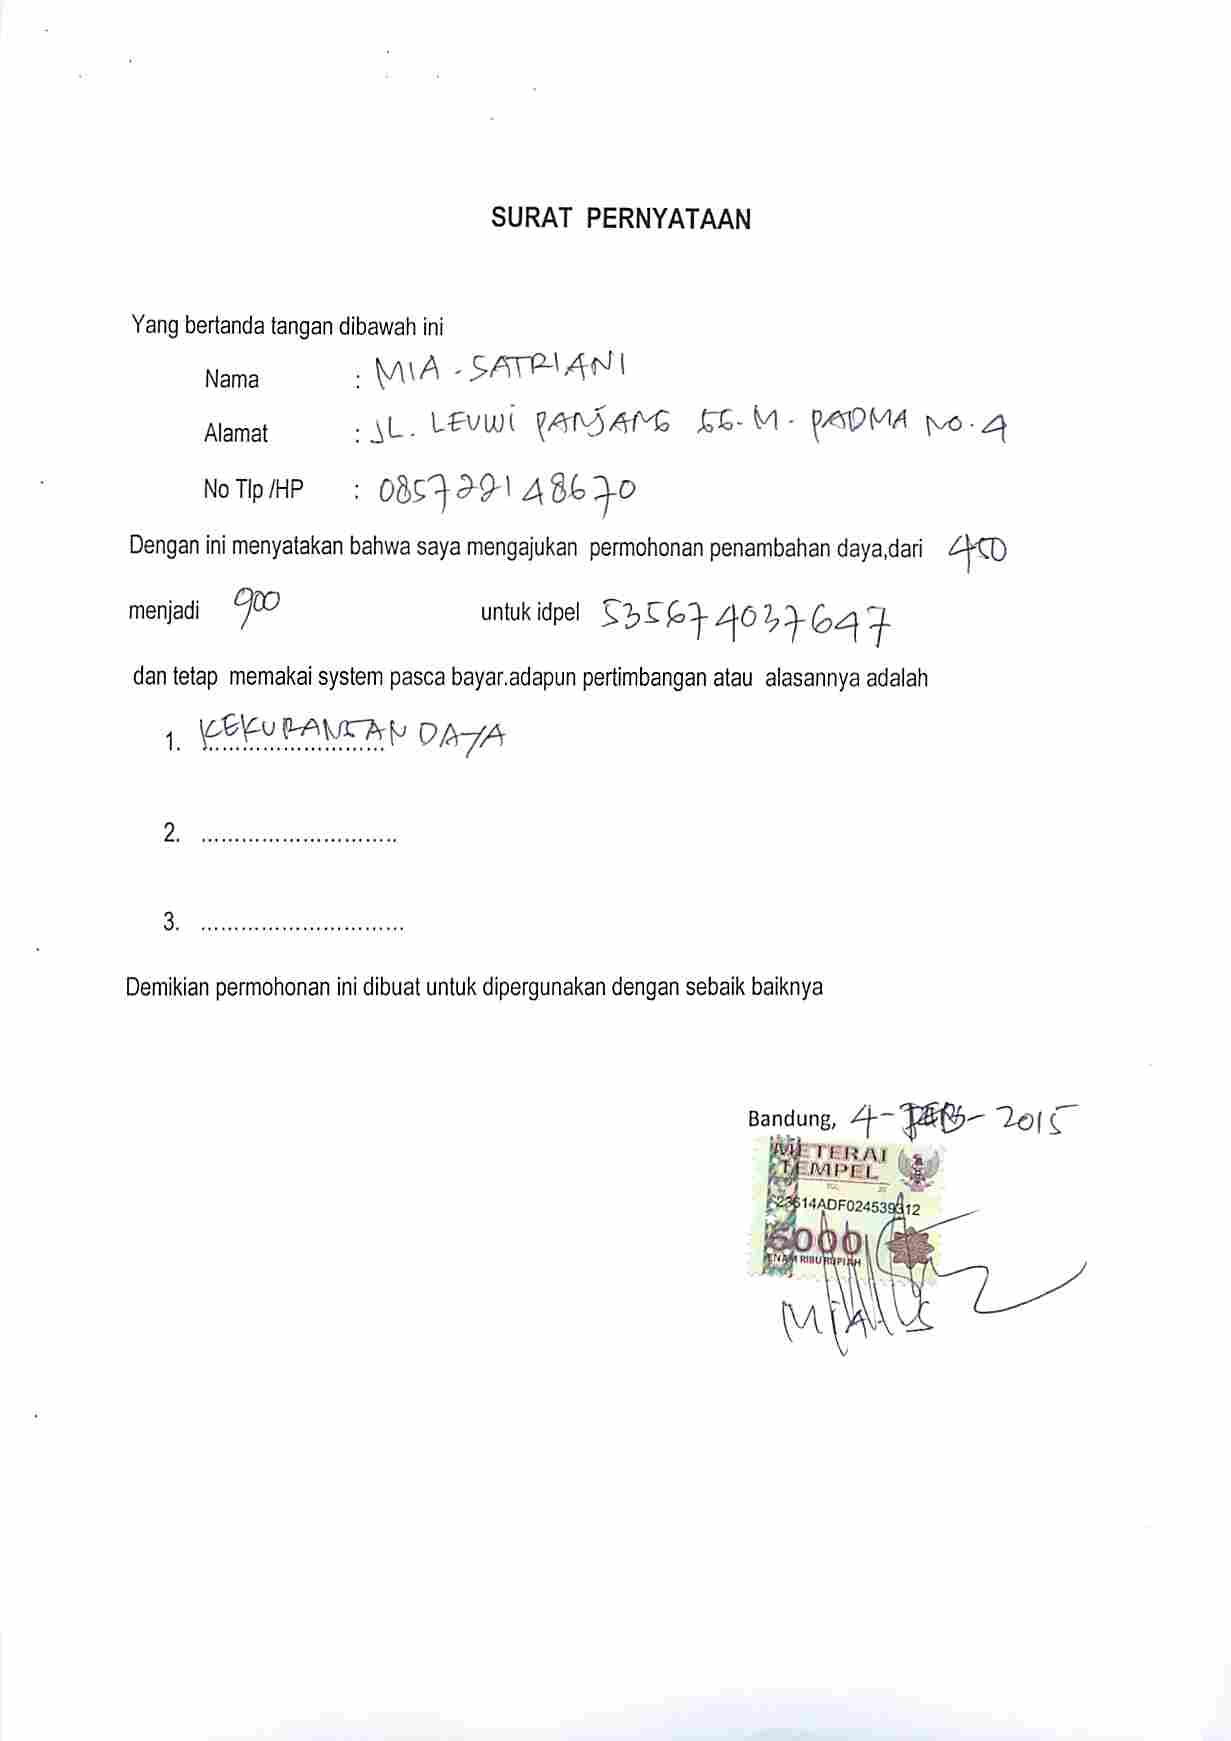 SURAT PERNYATAAN
Yang bertanda tangan dibawah ini
Nama : MIA - SATRIANI
Alamat : JL. LEUWI PANJANG GG. M. PADMA NO. 4
No Tlp /HP : 085722148670
Dengan ini menyatakan bahwa saya mengajukan permohonan penambahan daya,dari 450
menjadi 900 untuk idpel 535674037647
dan tetap memakai system pasca bayar.adapun pertimbangan atau alasannya adalah
1. KEKURANGAN DAYA
2. .............................
3. ..............................
Demikian permohonan ini dibuat untuk dipergunakan dengan sebaik baiknya
Bandung, 4- - 2015
METERAI
TEMPEL
TGL 20
23614ADF024539312
6000
ENAM RIBU RUPIAH
MIA.S